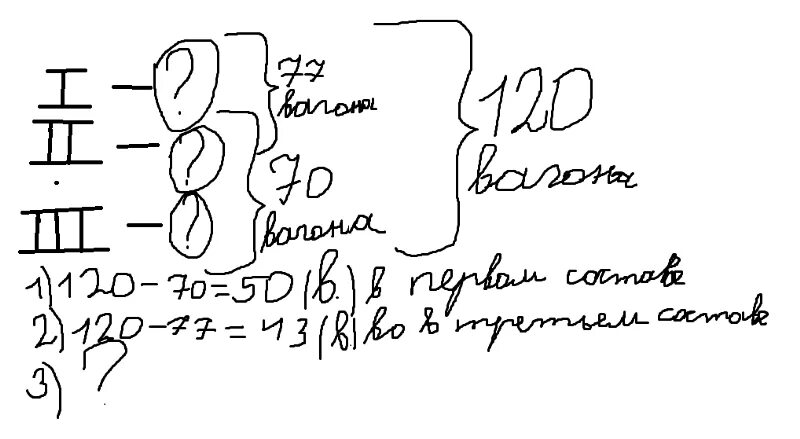 I - ? 77 вагона 120 вагоны
II - ?
70 вагона
III - ?
1) 120 - 70 = 50 (в.) в первом составе
2) 120 - 77 = 43 (в) во в третьем составе
3) ?